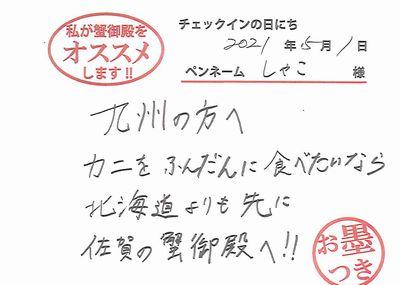 私が蟹御殿を
オススメ
します!!
チェックインの日にち
2021 年 5 月 1 日
ペンネーム しゃこ 様
九州の方へ
カニを ふんだんに 食べたいなら
北海道よりも 先に
佐賀の 蟹御殿へ!!
お墨
つき